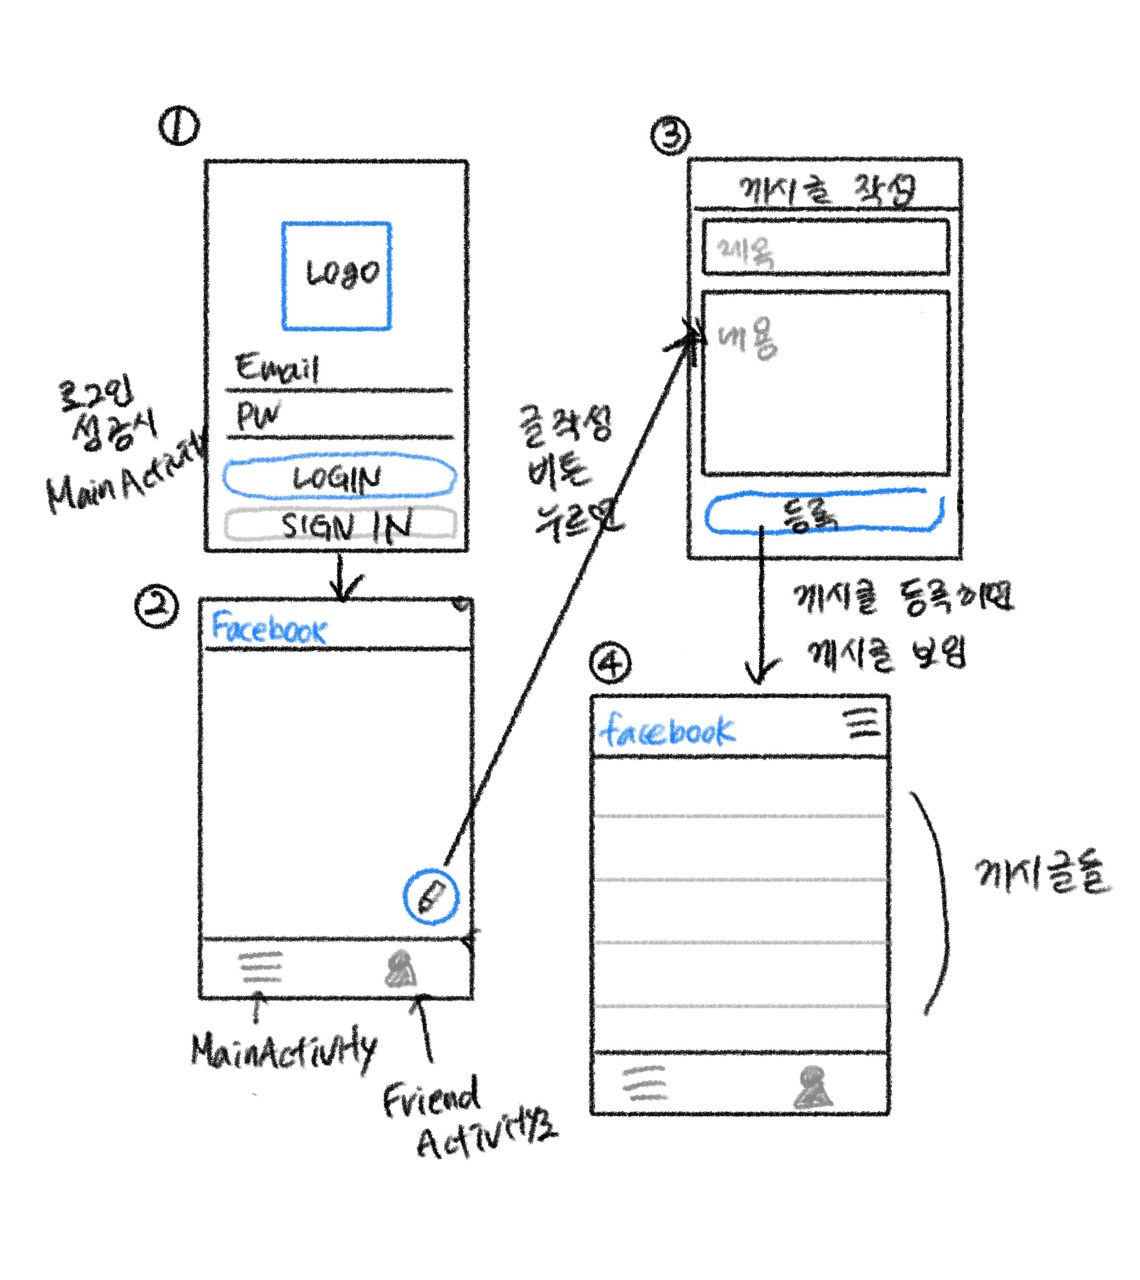 ①
Logo
Email
PW
LOGIN
SIGN IN
로그인
성공시
MainActivity
②
Facebook
MainActivity
Friend
Activity로
글작성
버튼
누르면
③
게시글 작성
제목
내용
등록
게시글 등록하면
게시글 보임
④
facebook
게시글들